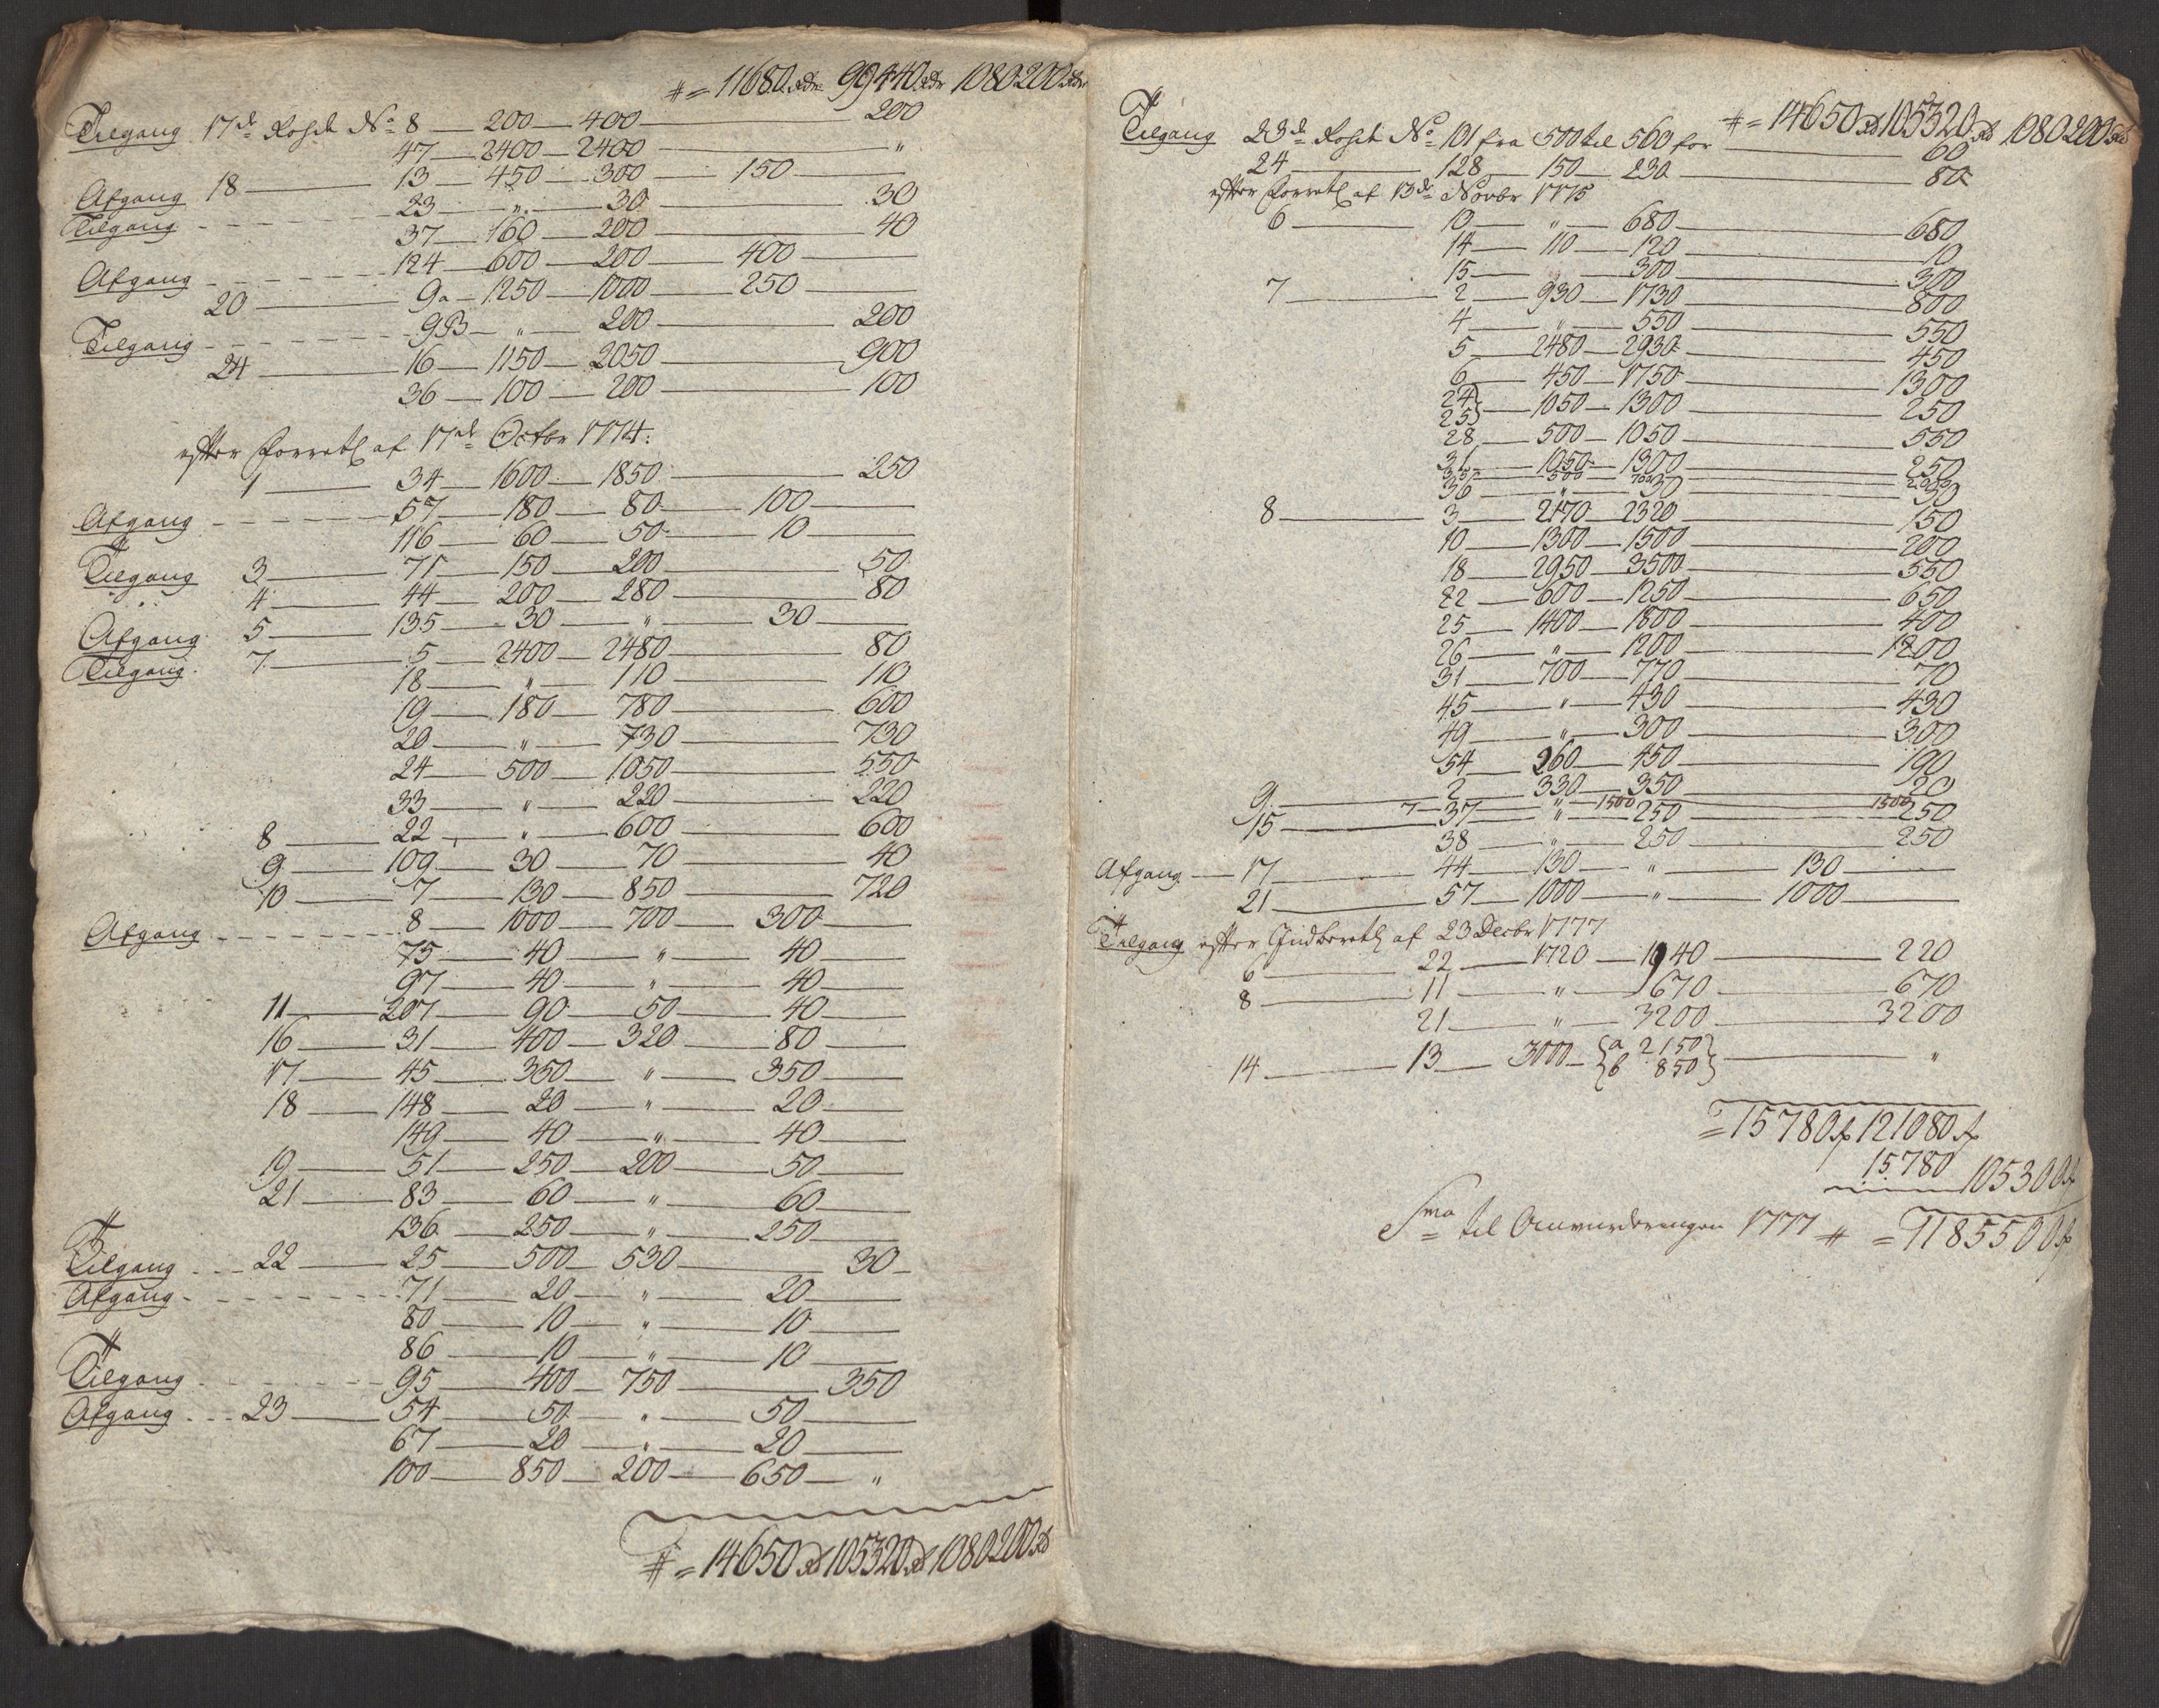 # = 11680 Rdr 99440 Rdr 1080200 Rdr
Tilgang 17de Rohde No 8 — 200 — 400 — 200
47 — 2400 — 2400 — "
Afgang 18 — 13 — 450 — 300 — 150 —
Tilgang - - - 23 — " — 30 — 30
37 — 160 — 200 — 40
Afgang - - - 124 — 600 — 200 — 400 —
20 — 9a — 1250 — 1000 — 250 —
Tilgang - - - 9B — " — 200 — 200
24 — 16 — 1150 — 2050 — 900
36 — 100 — 200 — 100
efter Forretg af 17de Octbr 1774:
1 — 34 — 1600 — 1850 — 250
Afgang - - - 57 — 180 — 80 — 100 —
116 — 60 — 50 — 10 —
Tilgang 3 — 71 — 150 — 200 — 50
4 — 44 — 200 — 280 — 80
Afgang 5 — 135 — 30 — " — 30 —
Tilgang 7 — 5 — 2400 — 2480 — 80
18 — " — 110 — 110
19 — 180 — 780 — 600
20 — " — 730 — 730
24 — 500 — 1050 — 550
33 — " — 220 — 220
8 — 22 — " — 600 — 600
9 — 109 — 30 — 70 — 40
10 — 7 — 130 — 850 — 720
Afgang - - - 8 — 1000 — 700 — 300 —
75 — 40 — " — 40 —
97 — 40 — " — 40 —
11 — 207 — 90 — 50 — 40 —
16 — 31 — 400 — 320 — 80 —
17 — 45 — 350 — " — 350 —
18 — 148 — 20 — " — 20 —
149 — 40 — " — 40 —
19 — 51 — 250 — 200 — 50 —
21 — 83 — 60 — " — 60 —
136 — 250 — " — 250 —
Tilgang - - 22 — 25 — 500 — 530 — 30 —
Afgang - - - 71 — 20 — " — 20 —
80 — 10 — " — 10 —
86 — 10 — " — 10 —
Tilgang - - - 95 — 400 — 750 — 350
Afgang - - 23 — 54 — 50 — " — 50 —
67 — 20 — " — 20 —
100 — 850 — 200 — 650 — "
# = 14650 Rd 105320 Rd 1080200 Rd
# = 14650 Rd 105320 Rd 1080200 Rd
Tilgang 23de Rohde No 101 fra 500 til 560 for — 60
24 — 128 — 150 — 230 — 80
efter Forretg af 13de Novbr 1775
6 — 10 — " — 680 — 680
14 — 110 — 120 — 10
15 — " — 300 — 300
7 — 2 — 930 — 1730 — 800
4 — " — 550 — 550
5 — 2480 — 2930 — 450
6 — 450 — 1750 — 1300
24
25} — 1050 — 1300 — 250
28 — 500 — 1050 — 550
31 — 1050 — 1300 — 250
35 — 500 — 700 — 200
36 — " — 30 — 30
8 — 3 — 2170 — 2320 — 150
10 — 1300 — 1500 — 200
18 — 2950 — 3500 — 550
22 — 600 — 1250 — 650
25 — 1400 — 1800 — 400
26 — " — 1200 — 1200
31 — 700 — 770 — 70
45 — " — 430 — 430
49 — " — 300 — 300
54 — 260 — 450 — 190
9 — 2 — 330 — 350 — 20
7 — 1500 — 1500
15 — 37 — " — 250 — 250
38 — " — 250 — 250
Afgang — 17 — 44 — 130 — " — 130 —
21 — 57 — 1000 — " — 1000 —
Tilgang efter Indberetg af 23 Decbr 1777
6 — 22 — 1720 — 1940 — 220
8 — 11 — " — 670 — 670
21 — " — 3200 — 3200
14 — 13 — 3000 — {a 2150} — "
{b 850}
= 15780 121080
15780 105300
Sma til Omvurderingen 1777 # = 1185500